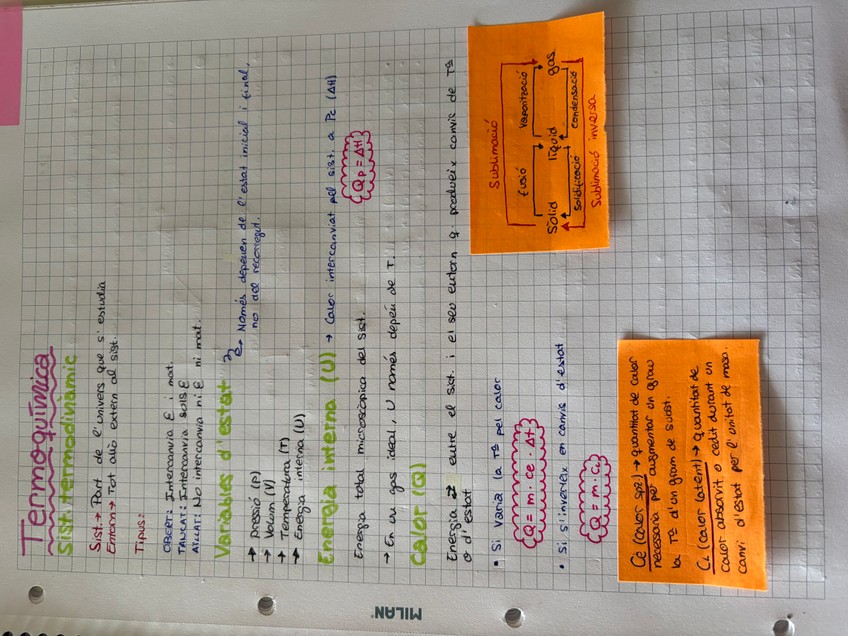 Termoquímica
Sist. termodinàmic
Sist. → Part de l'univers que s'estudia
Entorn → Tot allò extern al sist.
Tipus:
OBERT: Intercanvia E i mat.
TANCAT: Intercanvia sols E
AÏLLAT: No intercanvia ni E ni mat.
Variables d'estat
→ Només depenen de l'estat inicial i final,
no del recorregut.
→ pressió (P)
→ Volum (V)
→ Temperatura (T)
→ Energia interna (U)
Energia interna (U) → Calor intercanviat pel sist. a Pc (ΔH)
Qp = ΔH
Energia total microscòpica del sist.
→ En un gas ideal, U només depèn de T.
Calor (Q)
Energia ⇄ entre el sist. i el seu entorn q produeix canvis de Tª
o d'estat
• Si varia la Tª pel calor
Q = m · ce · Δt
• Si s'inverteix en canvis d'estat
Q = m · CL
Sublimació
fusió vaporització
Sòlid líquid gas
solidificació condensació
Sublimació inversa
Ce (calor spz) → quantitat de calor
necessària per augmentar un grau
la Tª d'un gram de subst.
CL (calor latent) → quantitat de
calor absorvit o cedit durant un
canvi d'estat per l'unitat de masa.
MILAN